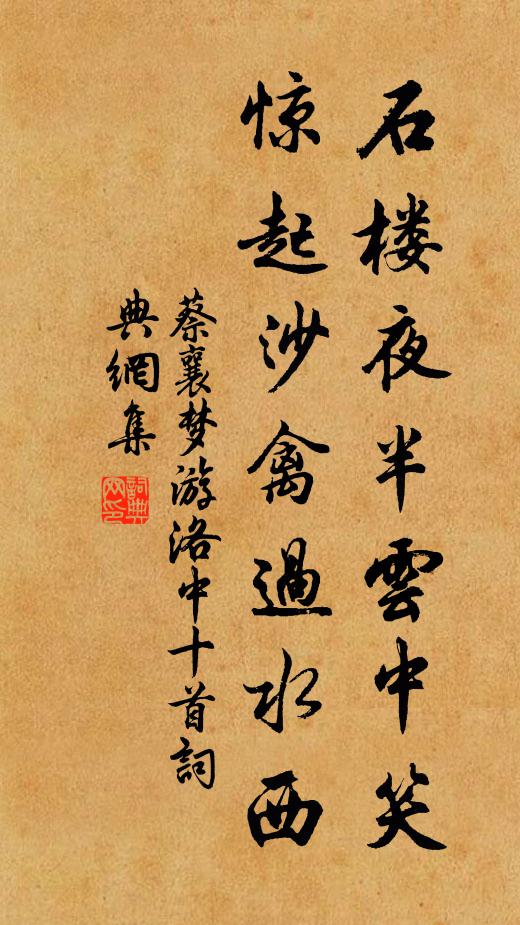 石楼夜半雲中笑
惊起沙禽過水西
蔡襄梦游洛中十首詞
典網集
詞典网印